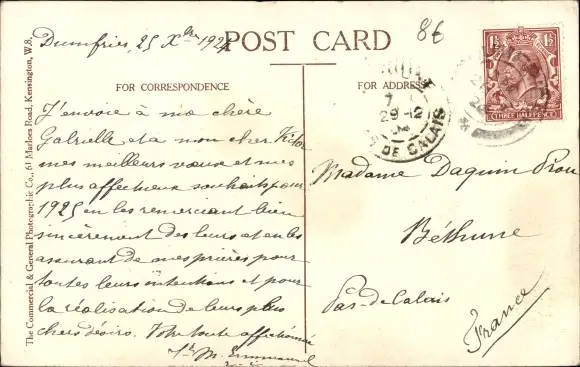 Dumfries, 25 Xbre 1924
POST CARD
8€
FOR CORRESPONDENCE
FOR ADDRESS
J'envoie à ma chère
Gabrielle et a mon cher Victor
mes meilleurs voeux et mes
plus affectueux souhaits pour
1925 en les remerciant bien
sincèrement des leurs et en les
assurant de mes prières pour
toutes leurs intentions et pour
la réalisation de leurs plus
chers désirs. Votre toute affectionnée
Sr M. Emmanuel
Madame Daquin
Béthune
Pas-de-Calais
France
29-12
DE CALAIS
1½
1½
THREE HALFPENCE
The Commercial & General Photographic Co., 61 Marloes Road, Kensington, W.8.